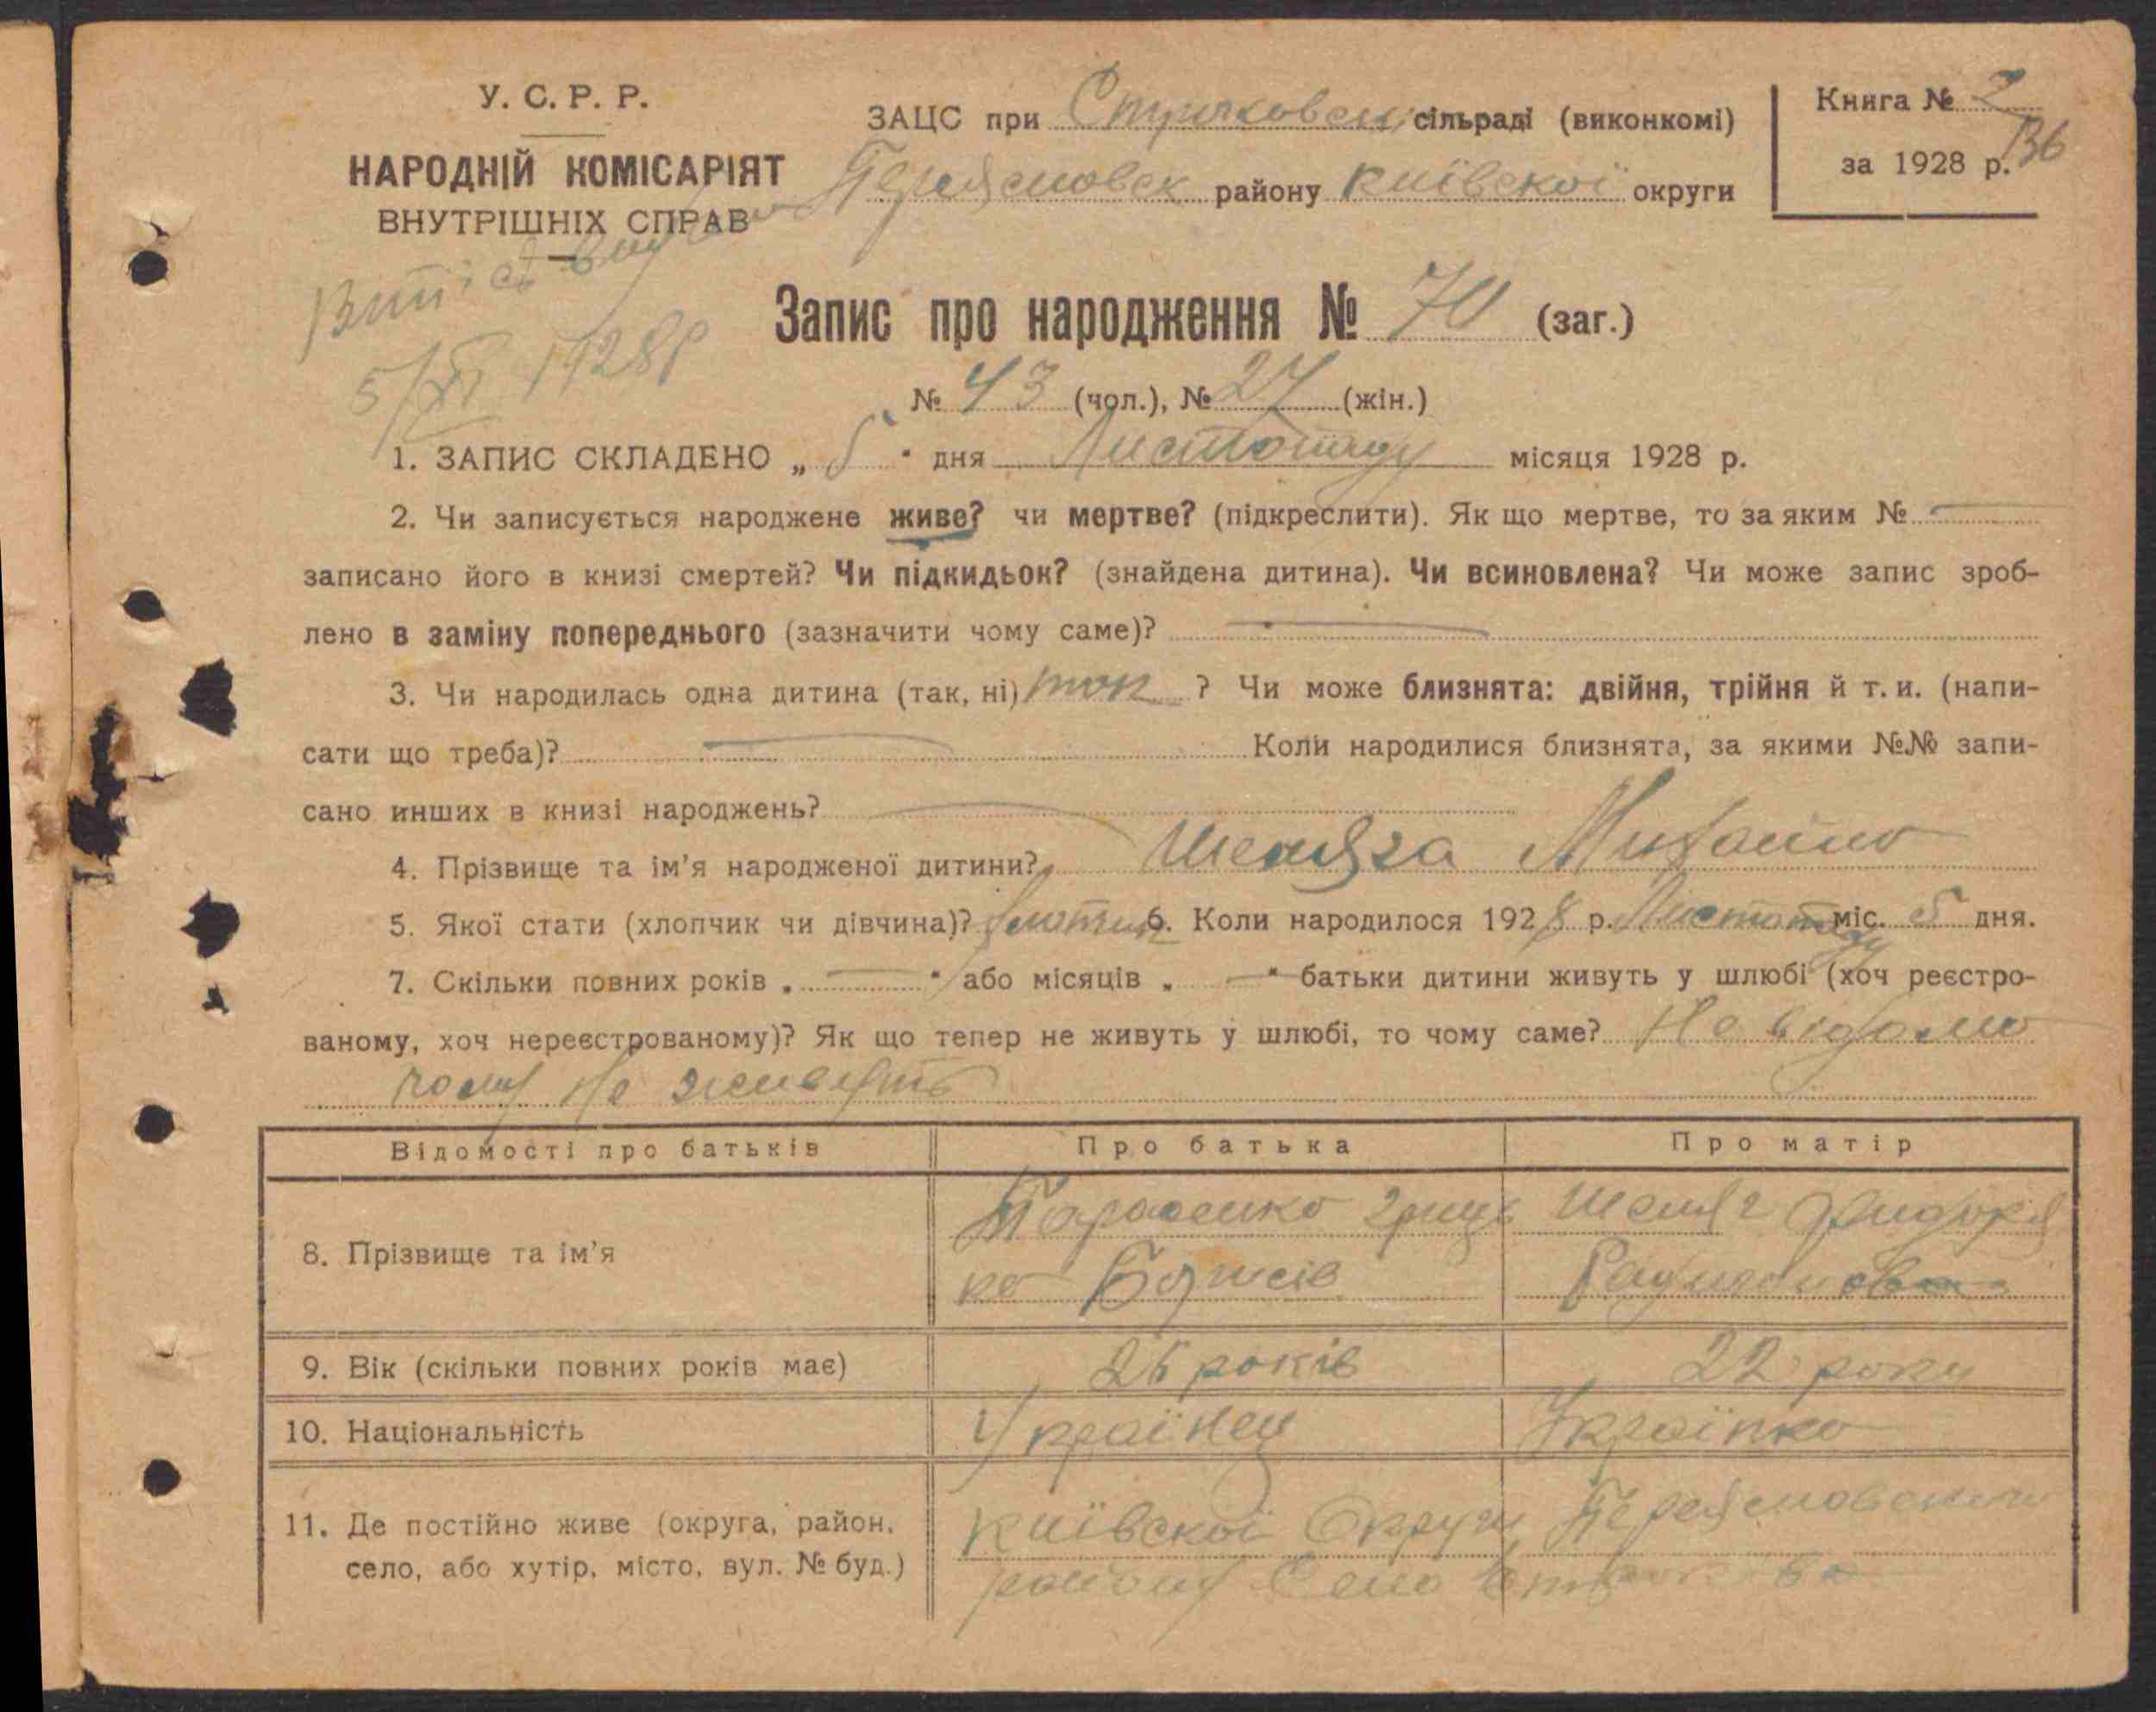 У. С. Р. Р.
НАРОДНІЙ КОМІСАРІЯТ
ВНУТРІШНІХ СПРАВ
ЗАЦС при сільраді (виконкомі)
району Київської округи
Книга № 2
за 1928 р. 136
5/XI 1928р
Запис про народження № 70 (заг.)
№ 43 (чол.), № 27 (жін.)
1. ЗАПИС СКЛАДЕНО „ 5 " дня Листопаду місяця 1928 р.
2. Чи записується народжене живе? чи мертве? (підкреслити). Як що мертве, то за яким №
записано його в книзі смертей? Чи підкидьок? (знайдена дитина). Чи всиновлена? Чи може запис зроб-
лено в заміну попереднього (зазначити чому саме)?
3. Чи народилась одна дитина (так, ні) так ? Чи може близнята: двійня, трійня й т. и. (напи-
сати що треба)? Коли народилися близнята, за якими №№ запи-
сано инших в книзі народжень?
4. Прізвище та ім'я народженої дитини? Михайло
5. Якої стати (хлопчик чи дівчина)? 6. Коли народилося 1928 р. Листопаду міс. 5 дня.
7. Скільки повних років „ " або місяців „ " батьки дитини живуть у шлюбі (хоч реєстро-
ваному, хоч нереєстрованому)? Як що тепер не живуть у шлюбі, то чому саме? Не відомо
чому не живуть
Відомості про батьків Про батька Про матір
8. Прізвище та ім'я Тарасенко
9. Вік (скільки повних років має) років 22 роки
10. Національність Українец Українка
11. Де постійно живе (округа, район, Київскої Округи
село, або хутір, місто, вул. № буд.) району Село